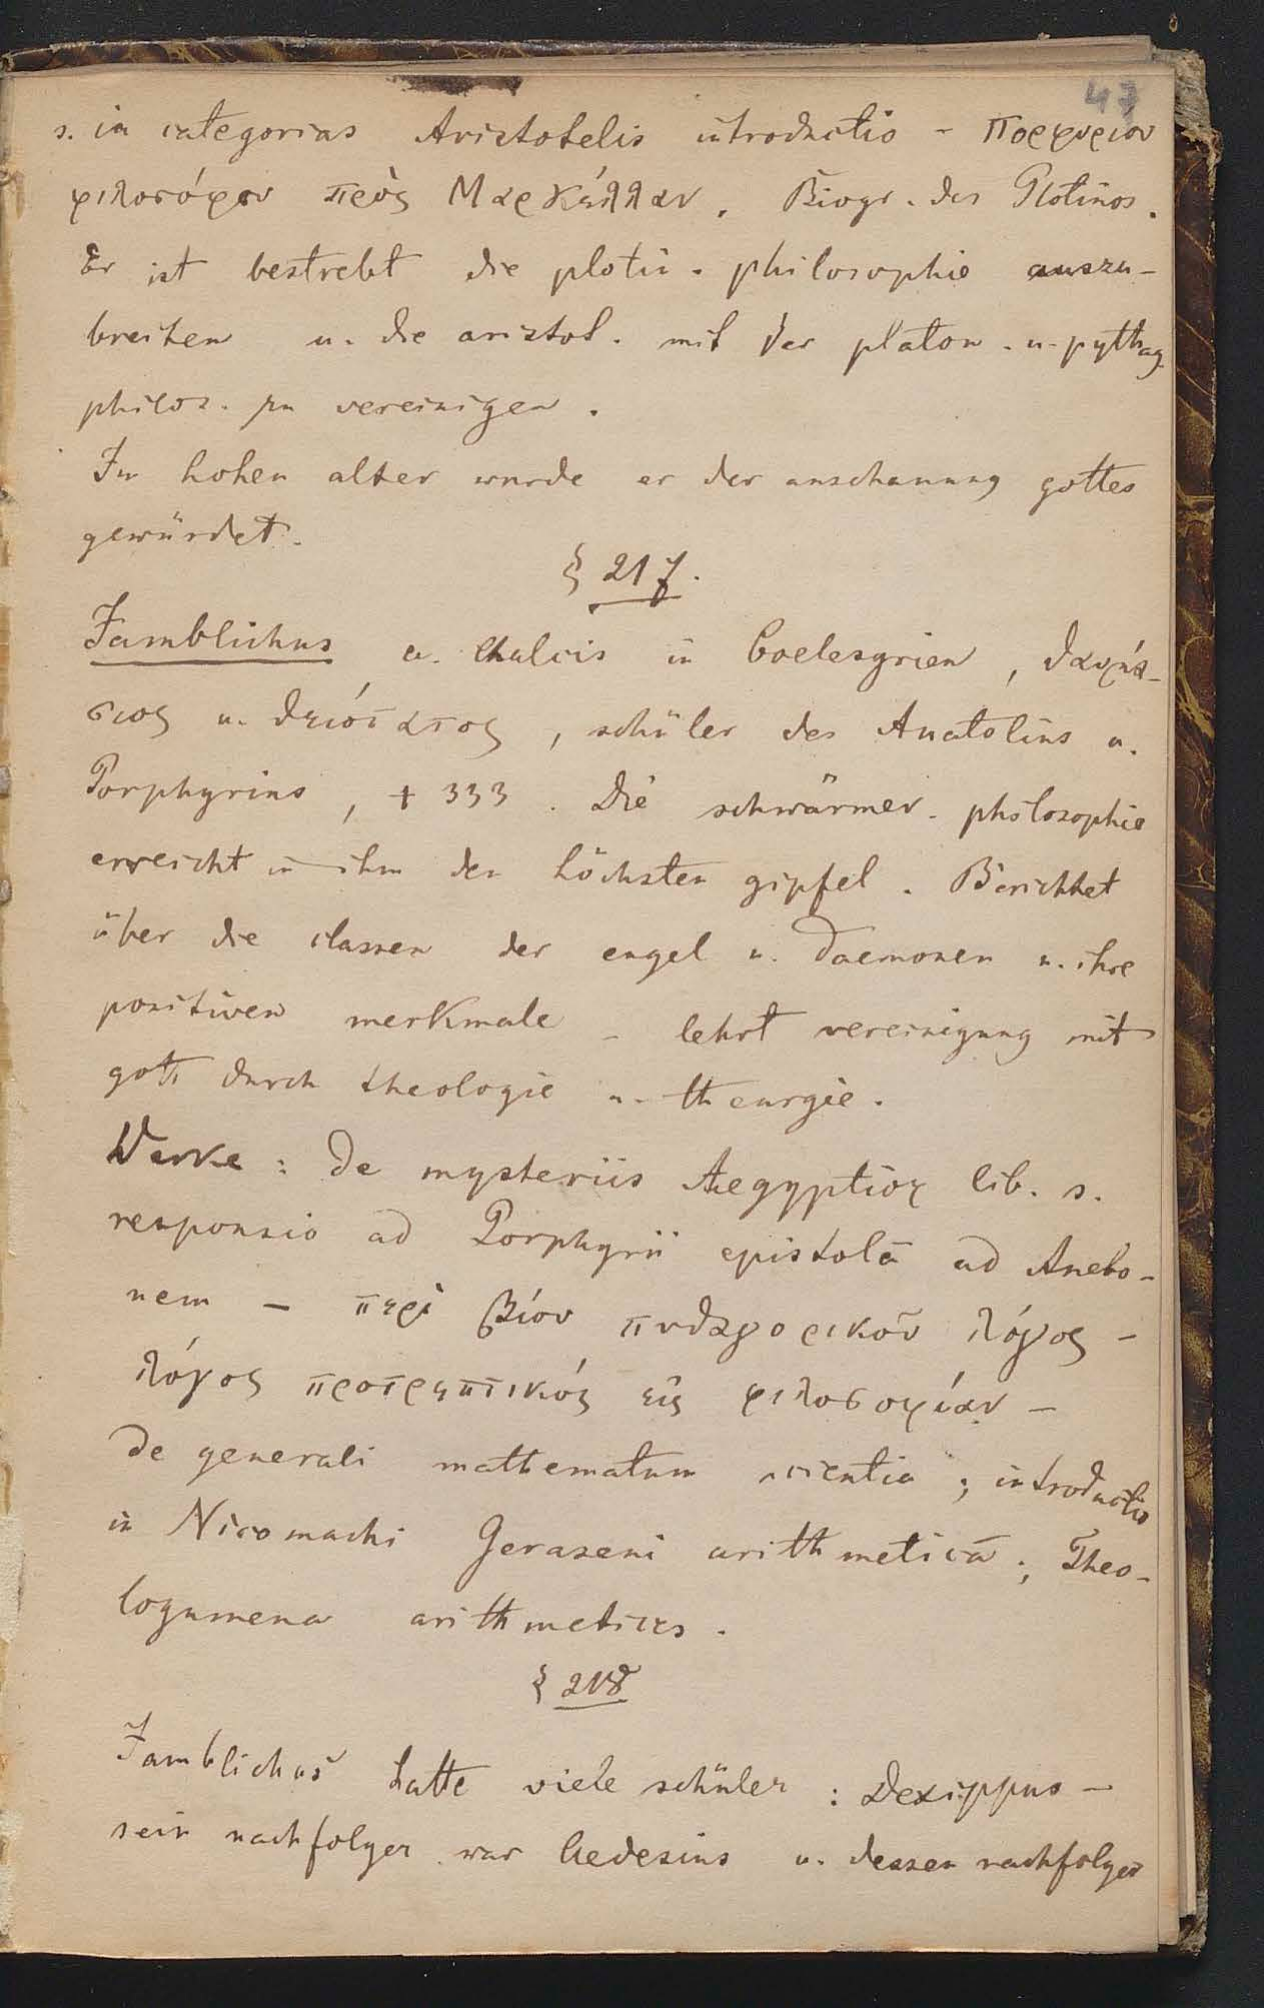 47
s. in categorias Aristotelis introductio - Πορφυριου
φιλοσόφου πρὸς Μαρκέλλαν. Biogr. des Plotinos.
Er ist bestrebt die plotin. philosophie auszu-
breiten u. die aristot. mit der platon. u. pythag.
philos. zu vereinigen.
Im hohen alter wurde er der anschauung gottes
gewürdet.
§ 217.
Jamblichus a. Chalcis in Coelesyrien, θαυμά-
σιος u. θειότατος, schüler des Anatolius u.
Porphyrius, + 333. Die schwärmer. philosophie
erreicht in ihm den höchsten gipfel. Berichtet
über die classen der engel u. daemonen u. ihre
positiven merkmale - lehrt vereinigung mit
gott durch theologie u. theurgie.
Werke: De mysteriis Aegyptior lib. s.
responsio ad Porphyrii epistolā ad Anebo-
nem - περὶ βίου πυθαγορικοῦ λόγος -
λόγος προτρεπτικός εἰς φιλοσοφίαν -
de generali mathematum scientia; introductio
in Nicomachi Geraseni arithmeticā; Theo-
logumena arithmetices.
§ 218
Jamblichus hatte viele schüler: Dexippus -
sein nachfolger war Aedesius u. dessen nachfolger